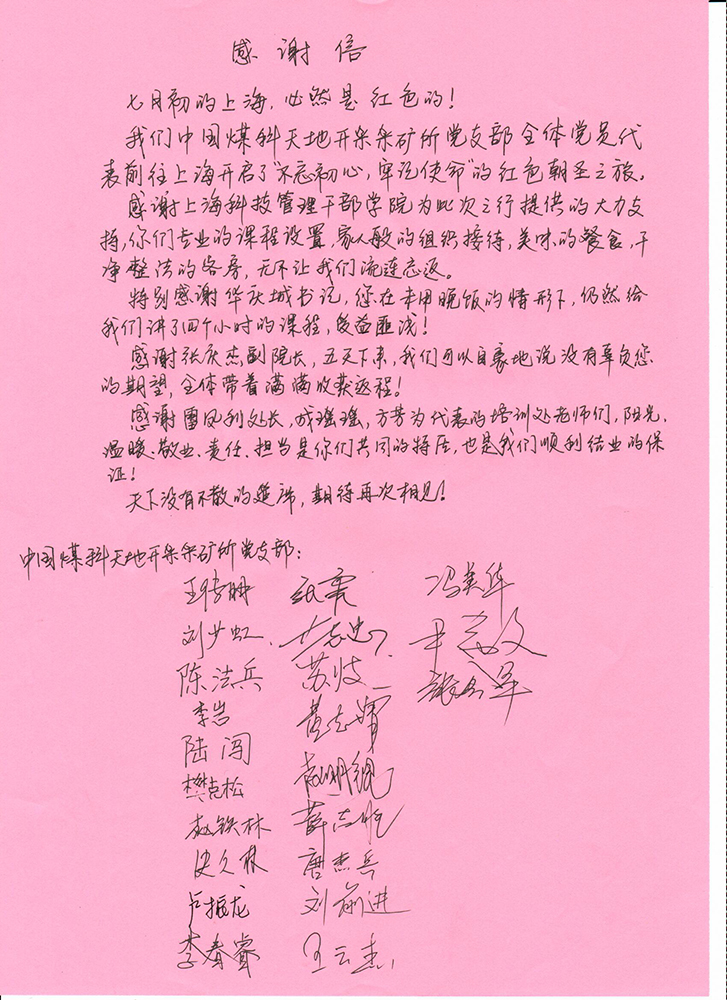 感谢信
七月初的上海，必然是红色的！
我们中国煤科天地开采采矿所党支部全体党员代
表前往上海开启了"不忘初心，牢记使命"的红色朝圣之旅。
感谢上海科技管理干部学院为此次之行提供的大力支
持，你们专业的课程设置，家人般的组织接待，美味的餐食，干
净整洁的客房，无不让我们流连忘返。
特别感谢华庆城书记，您在未用晚饭的情形下，仍然给
我们讲了四个小时的课程，受益匪浅！
感谢张庆杰副院长，五天下来，我们可以自豪地说没有辜负您
的期望，全体带着满满收获返程！
感谢凤利处长，成瑶瑶，方芳为代表的培训处老师们，阳光、
温暖、敬业、责任、担当是你们共同的特质，也是我们顺利结业的保
证！
天下没有不散的筵席，期待再次相见！
中国煤科天地开采采矿所党支部：
冯美华
刘少虹
陈法兵 苏波
李岩 黄志
陆闯
樊克松
赵铁林 薛
史久林 唐杰兵
卢振龙 刘前进
李春睿 王云杰